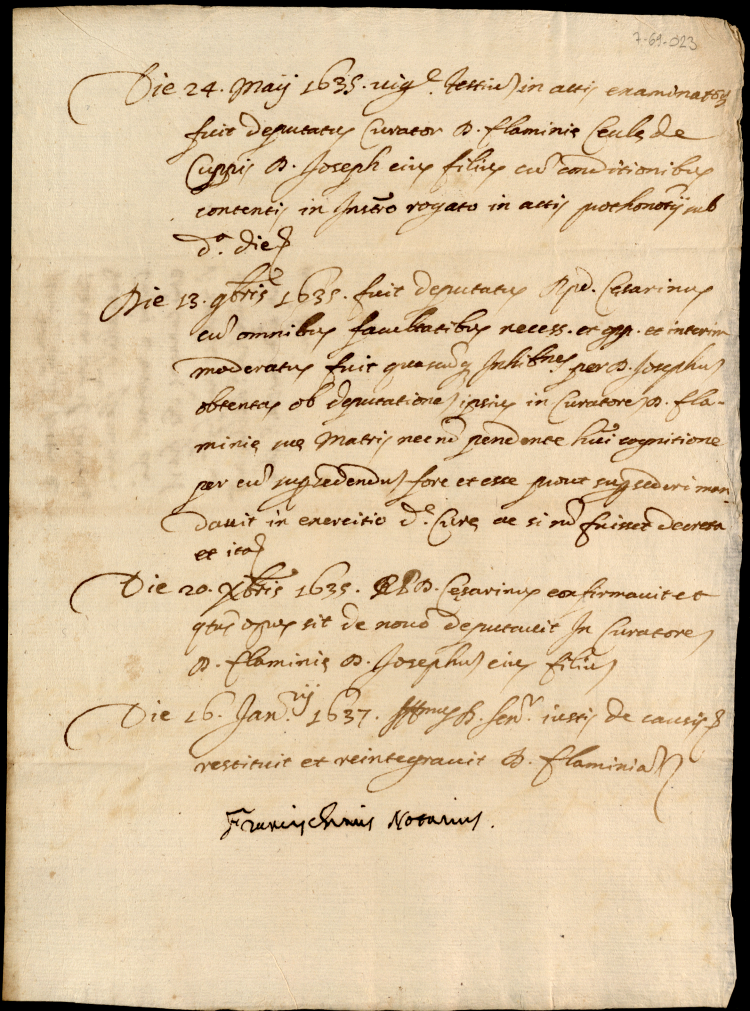 7-69-023
Die 24. Maij 1635. vig.e testiu) in actis examinator
fuit deputatus Curator D. Flaminię Ceulę de
Cuppis D. Joseph eius filius cu) conditionibus
contentis in Instro rogato in actis sub
d.a die
Die 13. 9bris 1635. fuit deputatus Rpd. Cęsarinus
cu) omnibus facultatibus necess. et opp. et interim
moderatus fuit quascunq Inhibnes per D. Josephu)
obtentas ob deputatione) ipsius in Curatore) D. Fla-
minię suę Matris necno) pendente cognitione
per eu) supsedendu) fore et esse prout supsederi man
davit in exercitio d.ę Curę ac si no) fuisset decreta
et ita
Die 20. Xbris 1635. R P D. Cęsarinus confirmavit et
qtus opus sit de novo deputavit In Curatore)
D. Flaminię D. Josephu) eius filiu)
Die 16. Jan.rij 1637. D. Sen.r iustis de causis
restituit et reintegravit D. Flaminia)
Notarius.